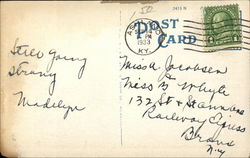 150
POST CARD
1933
KY.
Still Going
Strong
Madelyn
Miss A Jacobsen
Miss B Whyte
132 St &
Railway Express
Bronx
N.Y.